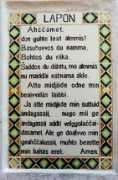 LAPON
Áhččámet,
don guhte leat almmis!
Basuhuvvos du namma.
Bohtos du riika.
Šaddos du dáhttu, mo almmis
nu maiddái eatnama alde.
Atte midjiide odne min
beaivválaš láibbi.
Ja atte midjiide min suttuid
ándagassii, nugo mii ge
ándagassii addit velggolaččai-
deamet. Ale ge doalvvo min
geahččalussii, muhto beastte
min bahás eret. Amen.